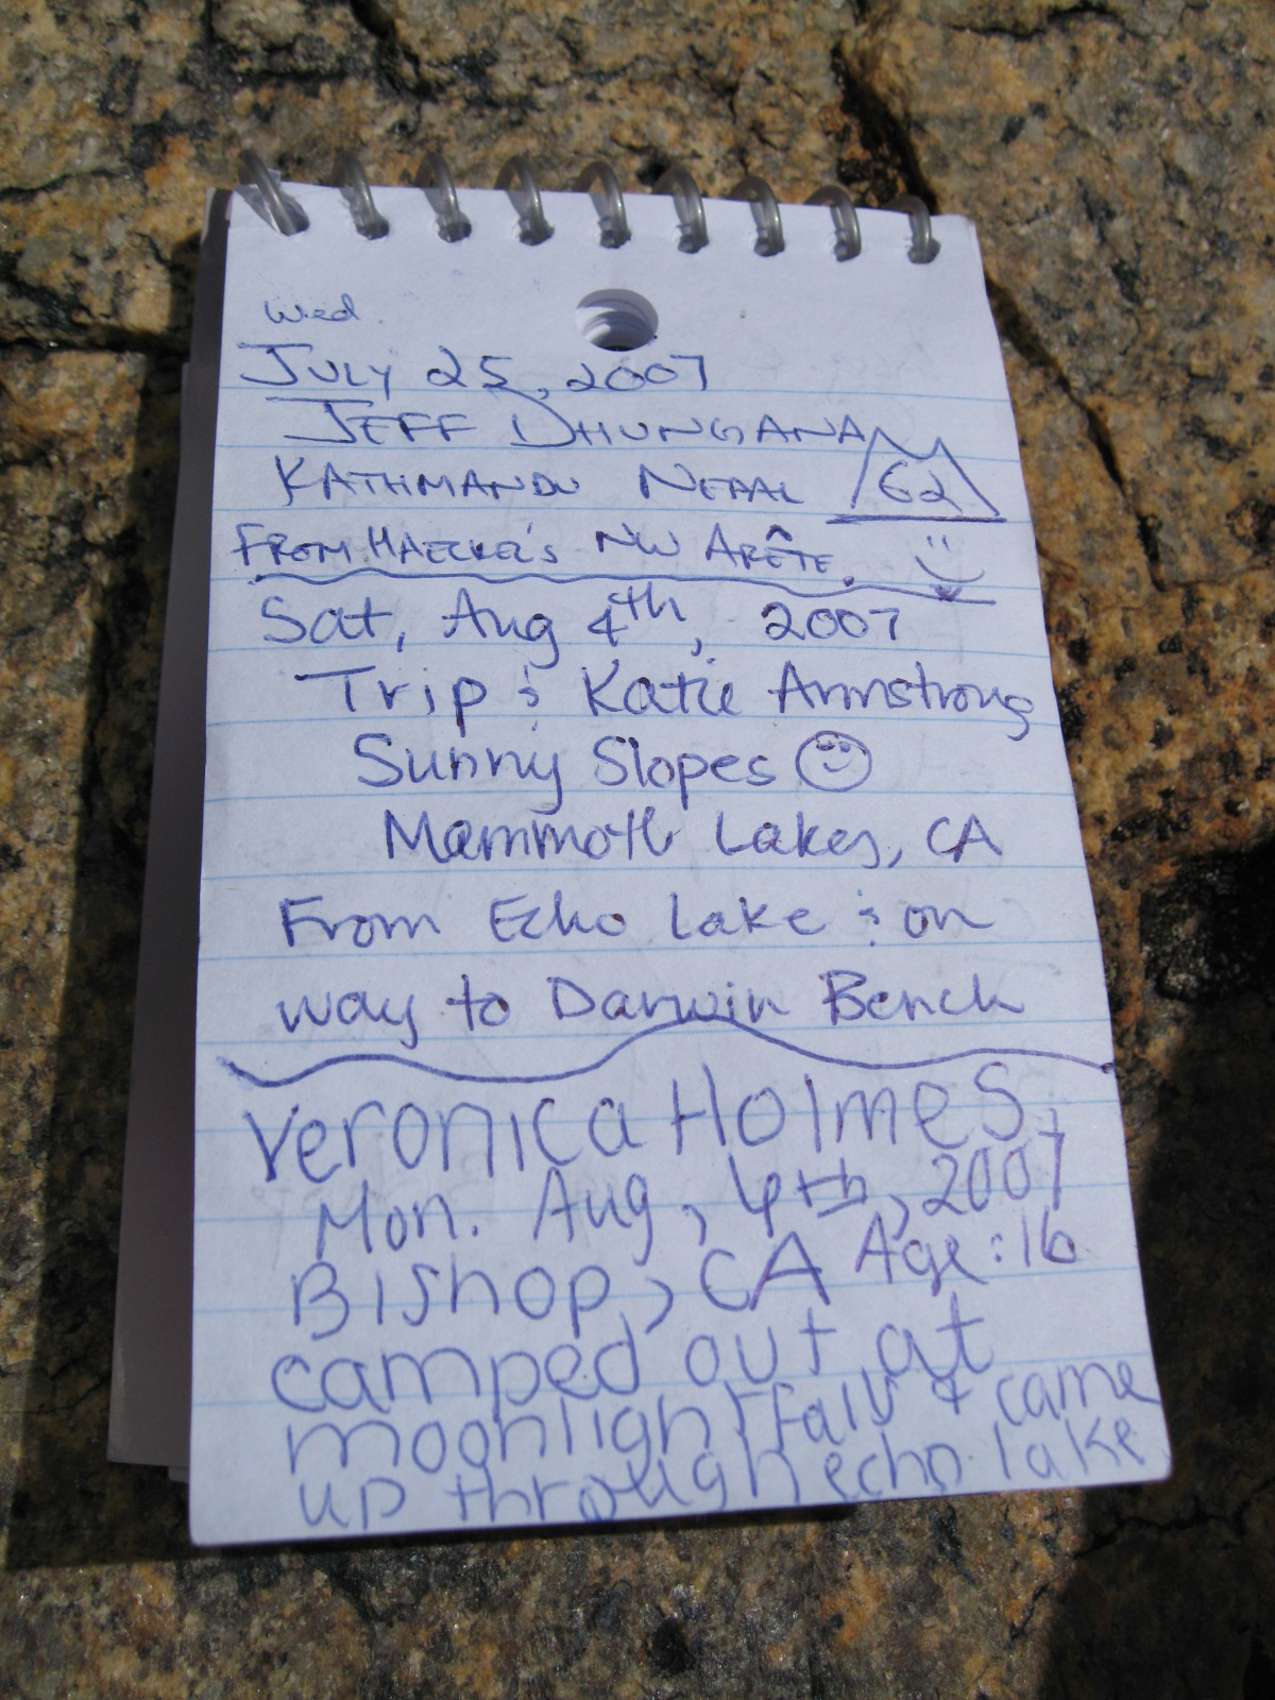 Wed.
JULY 25, 2007
JEFF DHUNGANA
KATHMANDU NEPAL 62
FROM HAECKEL'S NW ARÊTE.
Sat, Aug 4th, 2007
Trip & Katie Armstrong
Sunny Slopes
Mammoth Lakes, CA
From Echo Lake & on
way to Darwin Bench
Veronica Holmes,
Mon. Aug, 4th, 2007
Bishop, CA Age: 16
camped out at
moonlight falls & came
up through echo lake